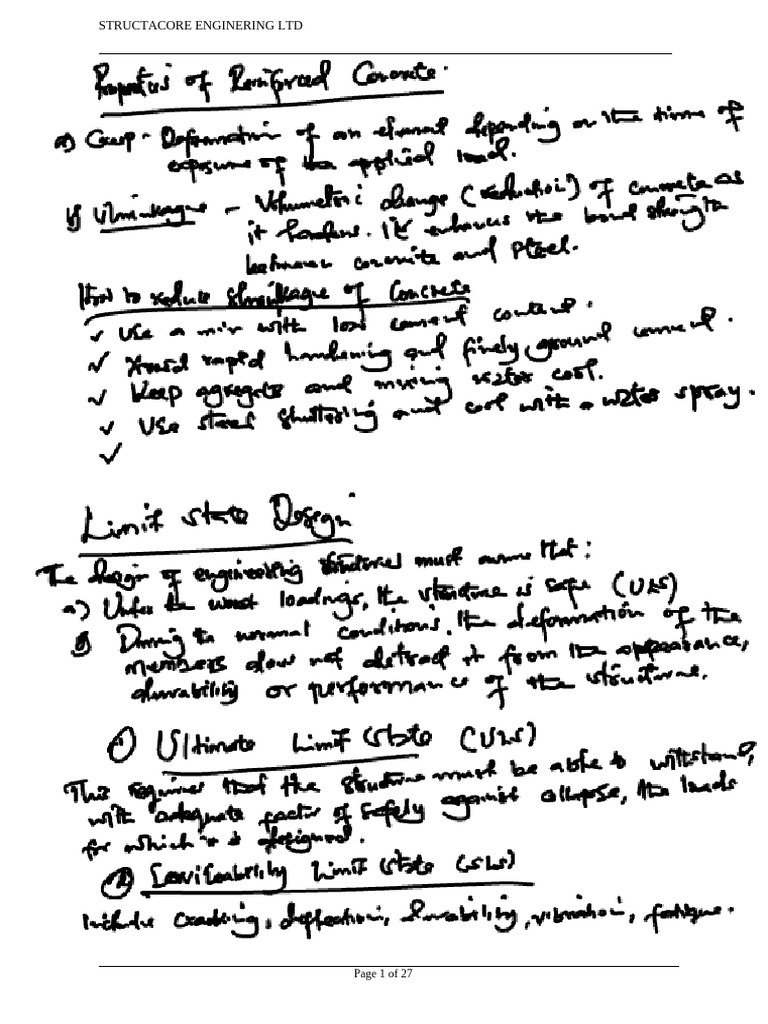 STRUCTACORE ENGINERING LTD
Properties of Reinforced Concrete.
a) Creep - Deformation of an element depending on the time of
exposure of the applied load.
b) Shrinkage - Volumetric change (reduction) of concrete as
it hardens. It enhances the bond strength
between concrete and steel.
How to reduce shrinkage of Concrete
✓ Use a mix with low cement content.
✓ Avoid rapid hardening and finely ground cement.
✓ Keep aggregate and mixing water cool.
✓ Use steel shuttering and cool with a water spray.
✓
Limit state Design
The design of engineering structures must ensure that:
a) Under the worst loadings, the structure is safe (ULS)
b) During the normal conditions, the deformation of the
members does not detract it from the appearance,
durability or performance of the structure.
① Ultimate Limit state (ULS)
This requires that the structure must be able to withstand,
with adequate factor of safety against collapse, the loads
for which it is designed.
② Serviceability Limit state (SLS)
Includes cracking, deflection, durability, vibration, fatigue.
Page 1 of 27